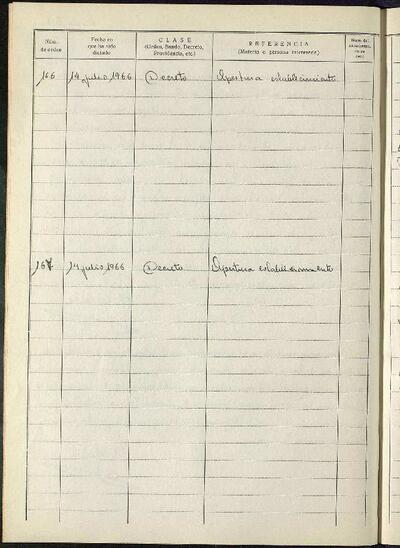 Núm. de orden
Fecha en que ha sido dictado
CLASE
(Orden, Bando, Decreto, Providencia, etc.)
REFERENCIA
(Materia o persona interesada)
166 14 julio, 1966 Decreto Apertura establecimiento
167 14 julio, 1966 Decreto Apertura establecimiento